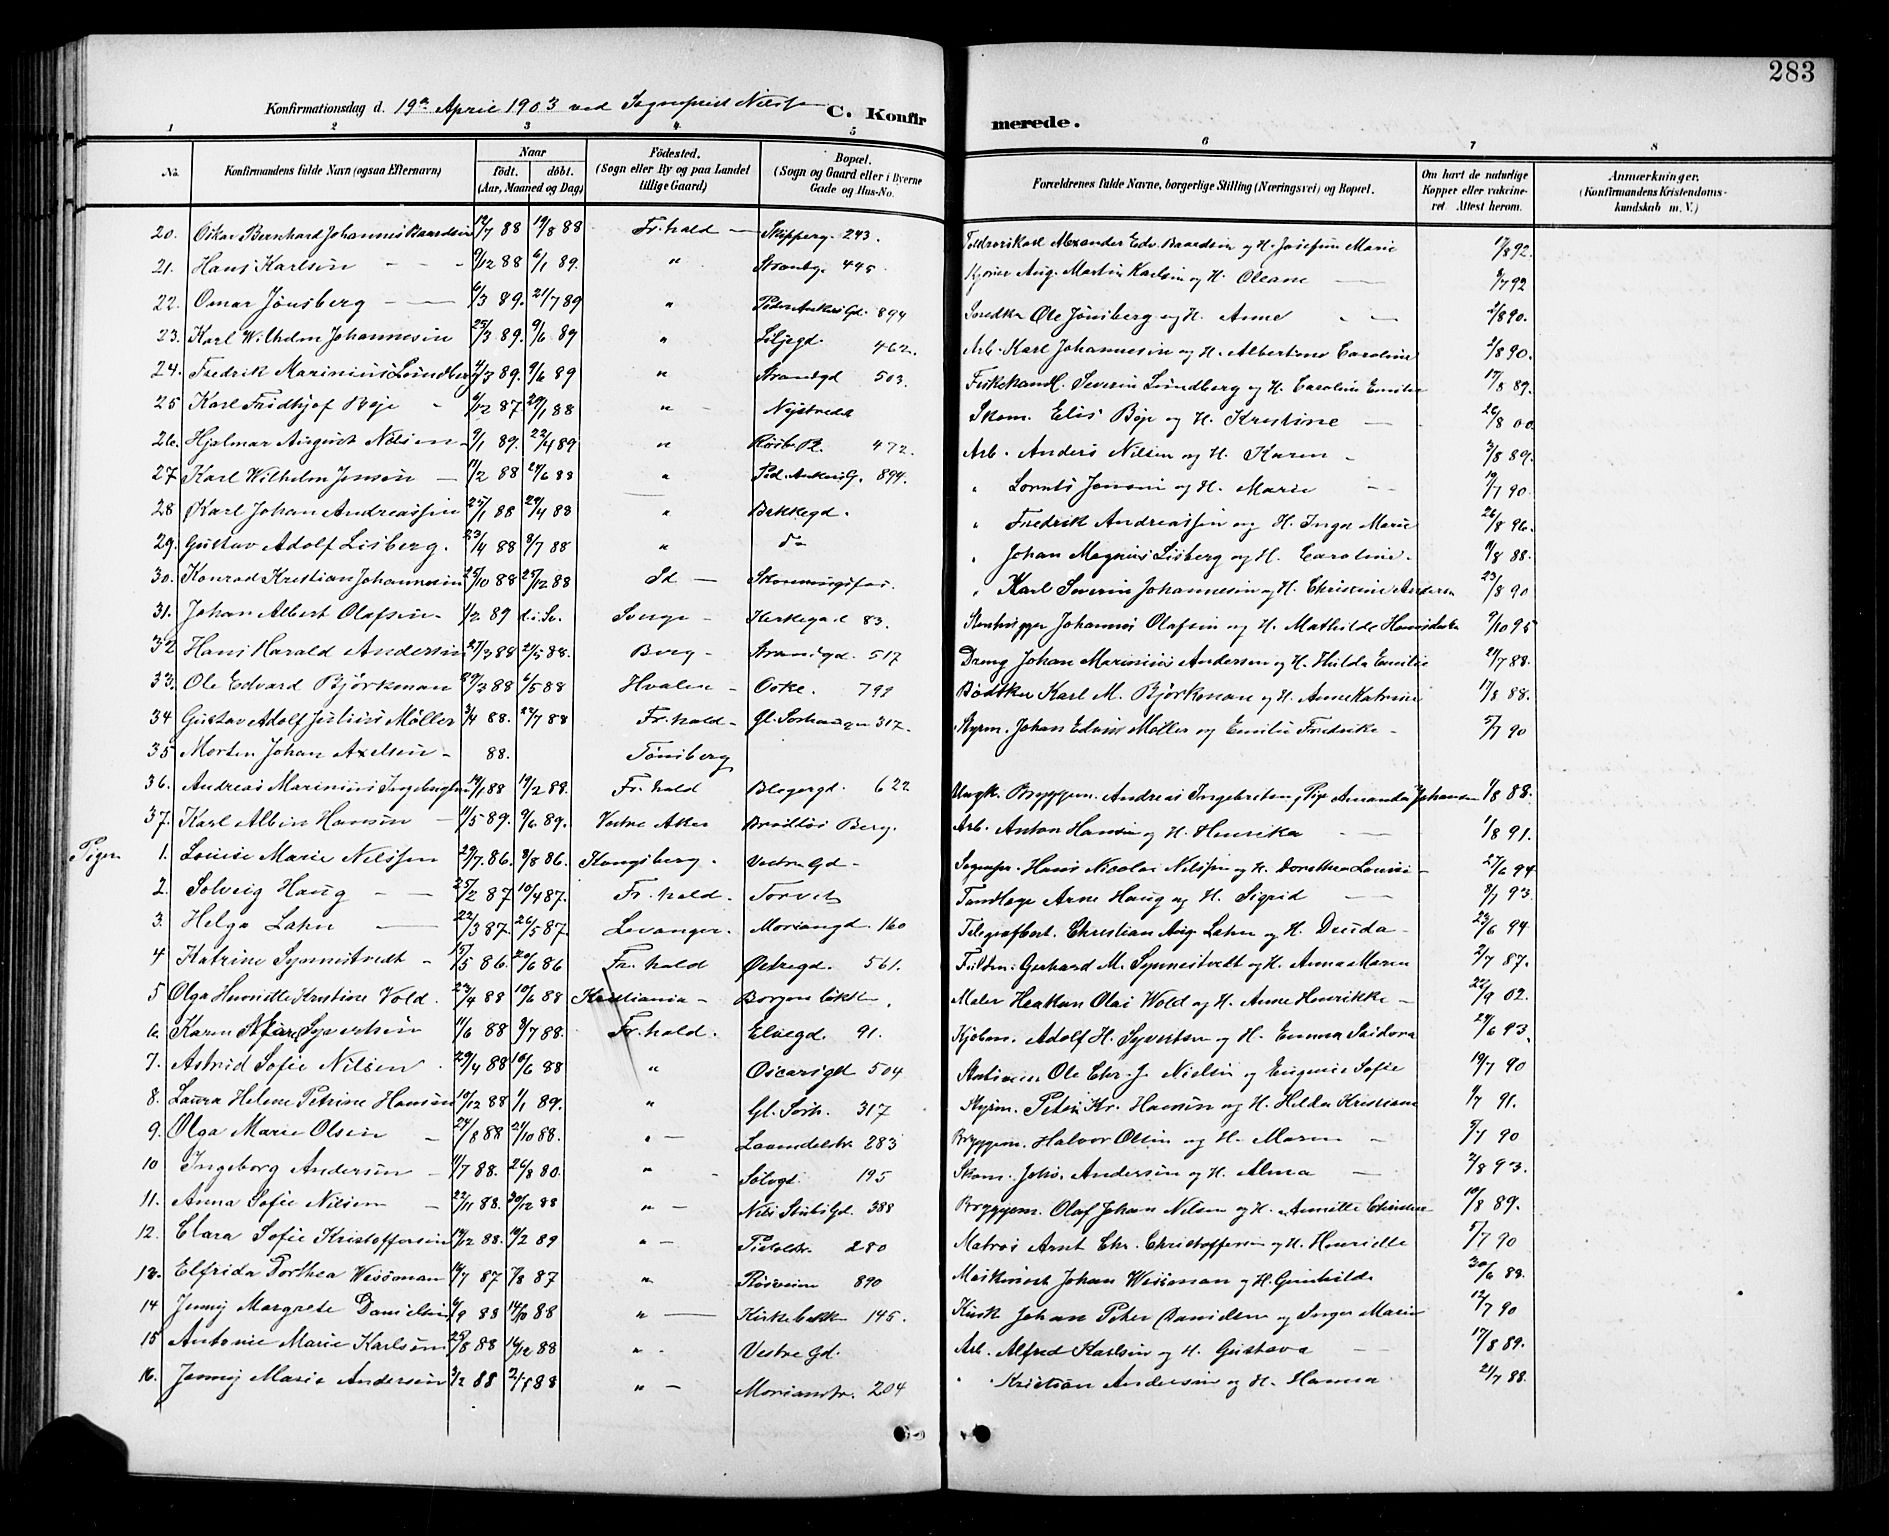 283
Konfirmationsdag d. 19de April 1903 ved Sognepræst Nilssen C. Konfirmerede.
1 2 3 4 5 6 7 8
No. Konfirmandens fulde Navn (ogsaa Efternavn) Naar født. døbt. (Aar, Maaned og Dag) Fødested. (Sogn eller By og paa Landet tillige Gaard) Bopæl. (Sogn og Gaard eller i Byerne Gade og Hus-No. Forældrenes fulde Navne, borgerlige Stilling (Næringsvei) og Bopæl. Om havt de naturlige Kopper eller vaccineret Attest herom. Anmærkninger. (Konfirmandens Kristendomskundskab m. V.)
20. Oskar Bernhard Johannes Baardsen 12/7 88 19/8 88 Fr.hald — Skipperg. 243. Alexander Edv. Baardsen og H. Josefine Marie 17/8 92.
21. Hans Karlsen 9/12 88 6/1 89. " Strandg. 445. Aug. Martin Karlsen og H. Oleane 9/7 92
22. Omar Jönsberg 6/3 89. 21/7 89 " Peder Ankers Gd. 894 Snedker Ole Jönsberg og H. Anne 2/8 90.
23. Karl Wilhelm Johannesen 25/3 89. 9/6 89 " Liljegd. 462. Arb. Karl Johannesen og H. Albertine Caroline 2/8 90.
24. Fredrik Marinius Lundberg 4/3 89. 9/6 89 " Strandgd 503. Fiskehandl. Severin Lundberg og H. Caroline Emilie 17/8 89.
25 Karl Fridtjof Böje 9/12 87 29/1 88 " Nystredet Skom. Elis Böje og H. Kristine 26/8 00
26. Hjalmar August Nilsen 9/1 89. 22/4 89 " 472. Arb. Anders Nilsen og H. Karen 3/8 89.
27 Karl Wilhelm Jensen 11/2 88 24/6 88 " Ped. Ankers G. 894. " Lorents Jensen og H. Marie 19/7 90.
28 Karl Johan Andreassen 25/1 88 29/4 88 " Bakkegd. " Fredrik Andreassen og H. Inger Marie 26/8 96.
29. Gustav Adolf Lisberg. 23/4 88 8/7 88 " do " Johan Magnus Lisberg og H. Caroline. 9/8 88.
30. Konrad Kristian Johannesen 25/10 88 25/12 88 Id — " Karl Severin Johannesen og H. Christine Andersen 23/8 90
31. Johan Albert Olafsen 1/2 89 d. i Sv. Sverge Kirkegad 83. Stenhugger Johannes Olafsen og H. Mathilde Hansdatter 9/10 95
32 Hans Harald Andersen 27/3 88 21/5 88. Berg — Strandgd. 517 Dreng Johan Marinius Andersen og H. Hilda Emilie 21/7 88.
33. Ole Edvard Björkman 29/3 88 6/5 88 Hvaler — Oske. 799 Bødtker Karl M. Björkman og H. Anne Katrine 17/8 88.
34 Gustav Adolf Julius Möller 3/4 88. 22/7 88 Fr.hald — Gl. Sorhaugen 317. Styrm. Johan Edvin Möller og Emilie Fredrike 5/7 90
35 Morten Johan Axelsen 88. Tönsberg
36. Andreas Marinius Ingebrigtsen 14/1 88 19/2 88. Fr.hald Blegergd. 622 Ungk. Bryggem. Andreas Ingebretsen, Pige Amanda Johansen 1/8 88.
37. Karl Albin Hansen 11/5 89. 9/6 89. Vestre Aker Berg. Arb. Anton Hansen og H. Henrika 1/8 91.
Piger 1. Louise Marie Nilssen 29/7 86. 9/8 86. Kongsberg. Vestre Gd. Sognepr. Hans Nicolai Nilssen og H. Dorethea Louise 27/6 94
2. Solveig Haug 25/2 87 10/4 87. Fr.hald. Torvet Tandlæge Arne Haug og H. Sigrid 8/7 93.
3. Helga Lahn 22/3 87. 26/5 87. Levanger. Moriangd. 160 Telegrafbest. Christian Aug. Lahn og H. 22/6 94
4 Katrine Synnestvedt 15/5 86. 20/6 86 Fr.hald Østregd. 561. Gerhard M. Synnestvedt og H. Anna Maren 2/7 87.
5 Olga Henriette Kristine Vold. 22/4 88 10/6 88 Kristiania — Borgerløkken. Maler Heakon Olai Wold og H. Anne Henrikke 22/9 02.
6. Karen Marie Syvertsen 11/6 88 9/7 88. Fr.hald. Elvegd 91. Kjøbm. Adolf H. Syvertsen og H. Emma 24/6 93.
7. Astrid Sofie Nilsen 29/4 88 10/6 88 " Oscarsgd 504 Ole Chr. J. Nielsen og Eugenie Sofie 19/7 90
8. Laura Helene Petrine Hansen 10/12 88 1/1 89. " Gl. Sorh. 317 Styrm. Peter Kr. Hansen og H. Hilda Kristiane 1/7 91.
9. Olga Marie Olsen 24/8 88 21/10 88. " — 283 Bryggem. Halvor Olsen og H. Maren 5/7 90
10 Ingeborg Andersen 11/7 88. 26/8 80. " Sölvgd. 195 Skom. Johs. Andersen og H. Alma 2/8 93.
11. Anna Sofie Nilsen 22/11 88. 30/12 88 " Nils Stubs Gd. 388 Bryggem. Olaf Johan Nilsen og H. Annette Christine 10/8 89.
12. Clara Sofie Kristoffersen 14/12 88. 10/2 89 " — 280 Matros Arnt Chr. Christoffersen og H. Henriette 5/7 90
13. Elfrida Dorthea Wessman 14/7 87 7/8 87 " Røsveien 890 Maskinist Johan Wessman og H. Gunhilde 30/6 88.
14 Jenny Margrete Danielsen 6/9 88 14/10 88 " — Kirkebakk 145. Kusk Johan Peter Danielsen og Inger Marie 12/7 90
15 Antonie Marie Karlsen 25/8 88 16/12 88 " Vestre Gd. Arb. Alfred Karlsen og H. Gustava 17/8 89.
16. Jenny Marie Andersen 3/2 88 2/4 88 " — Morianstr. 204 " Kristian Andersen og H. Hanna. 21/7 88.